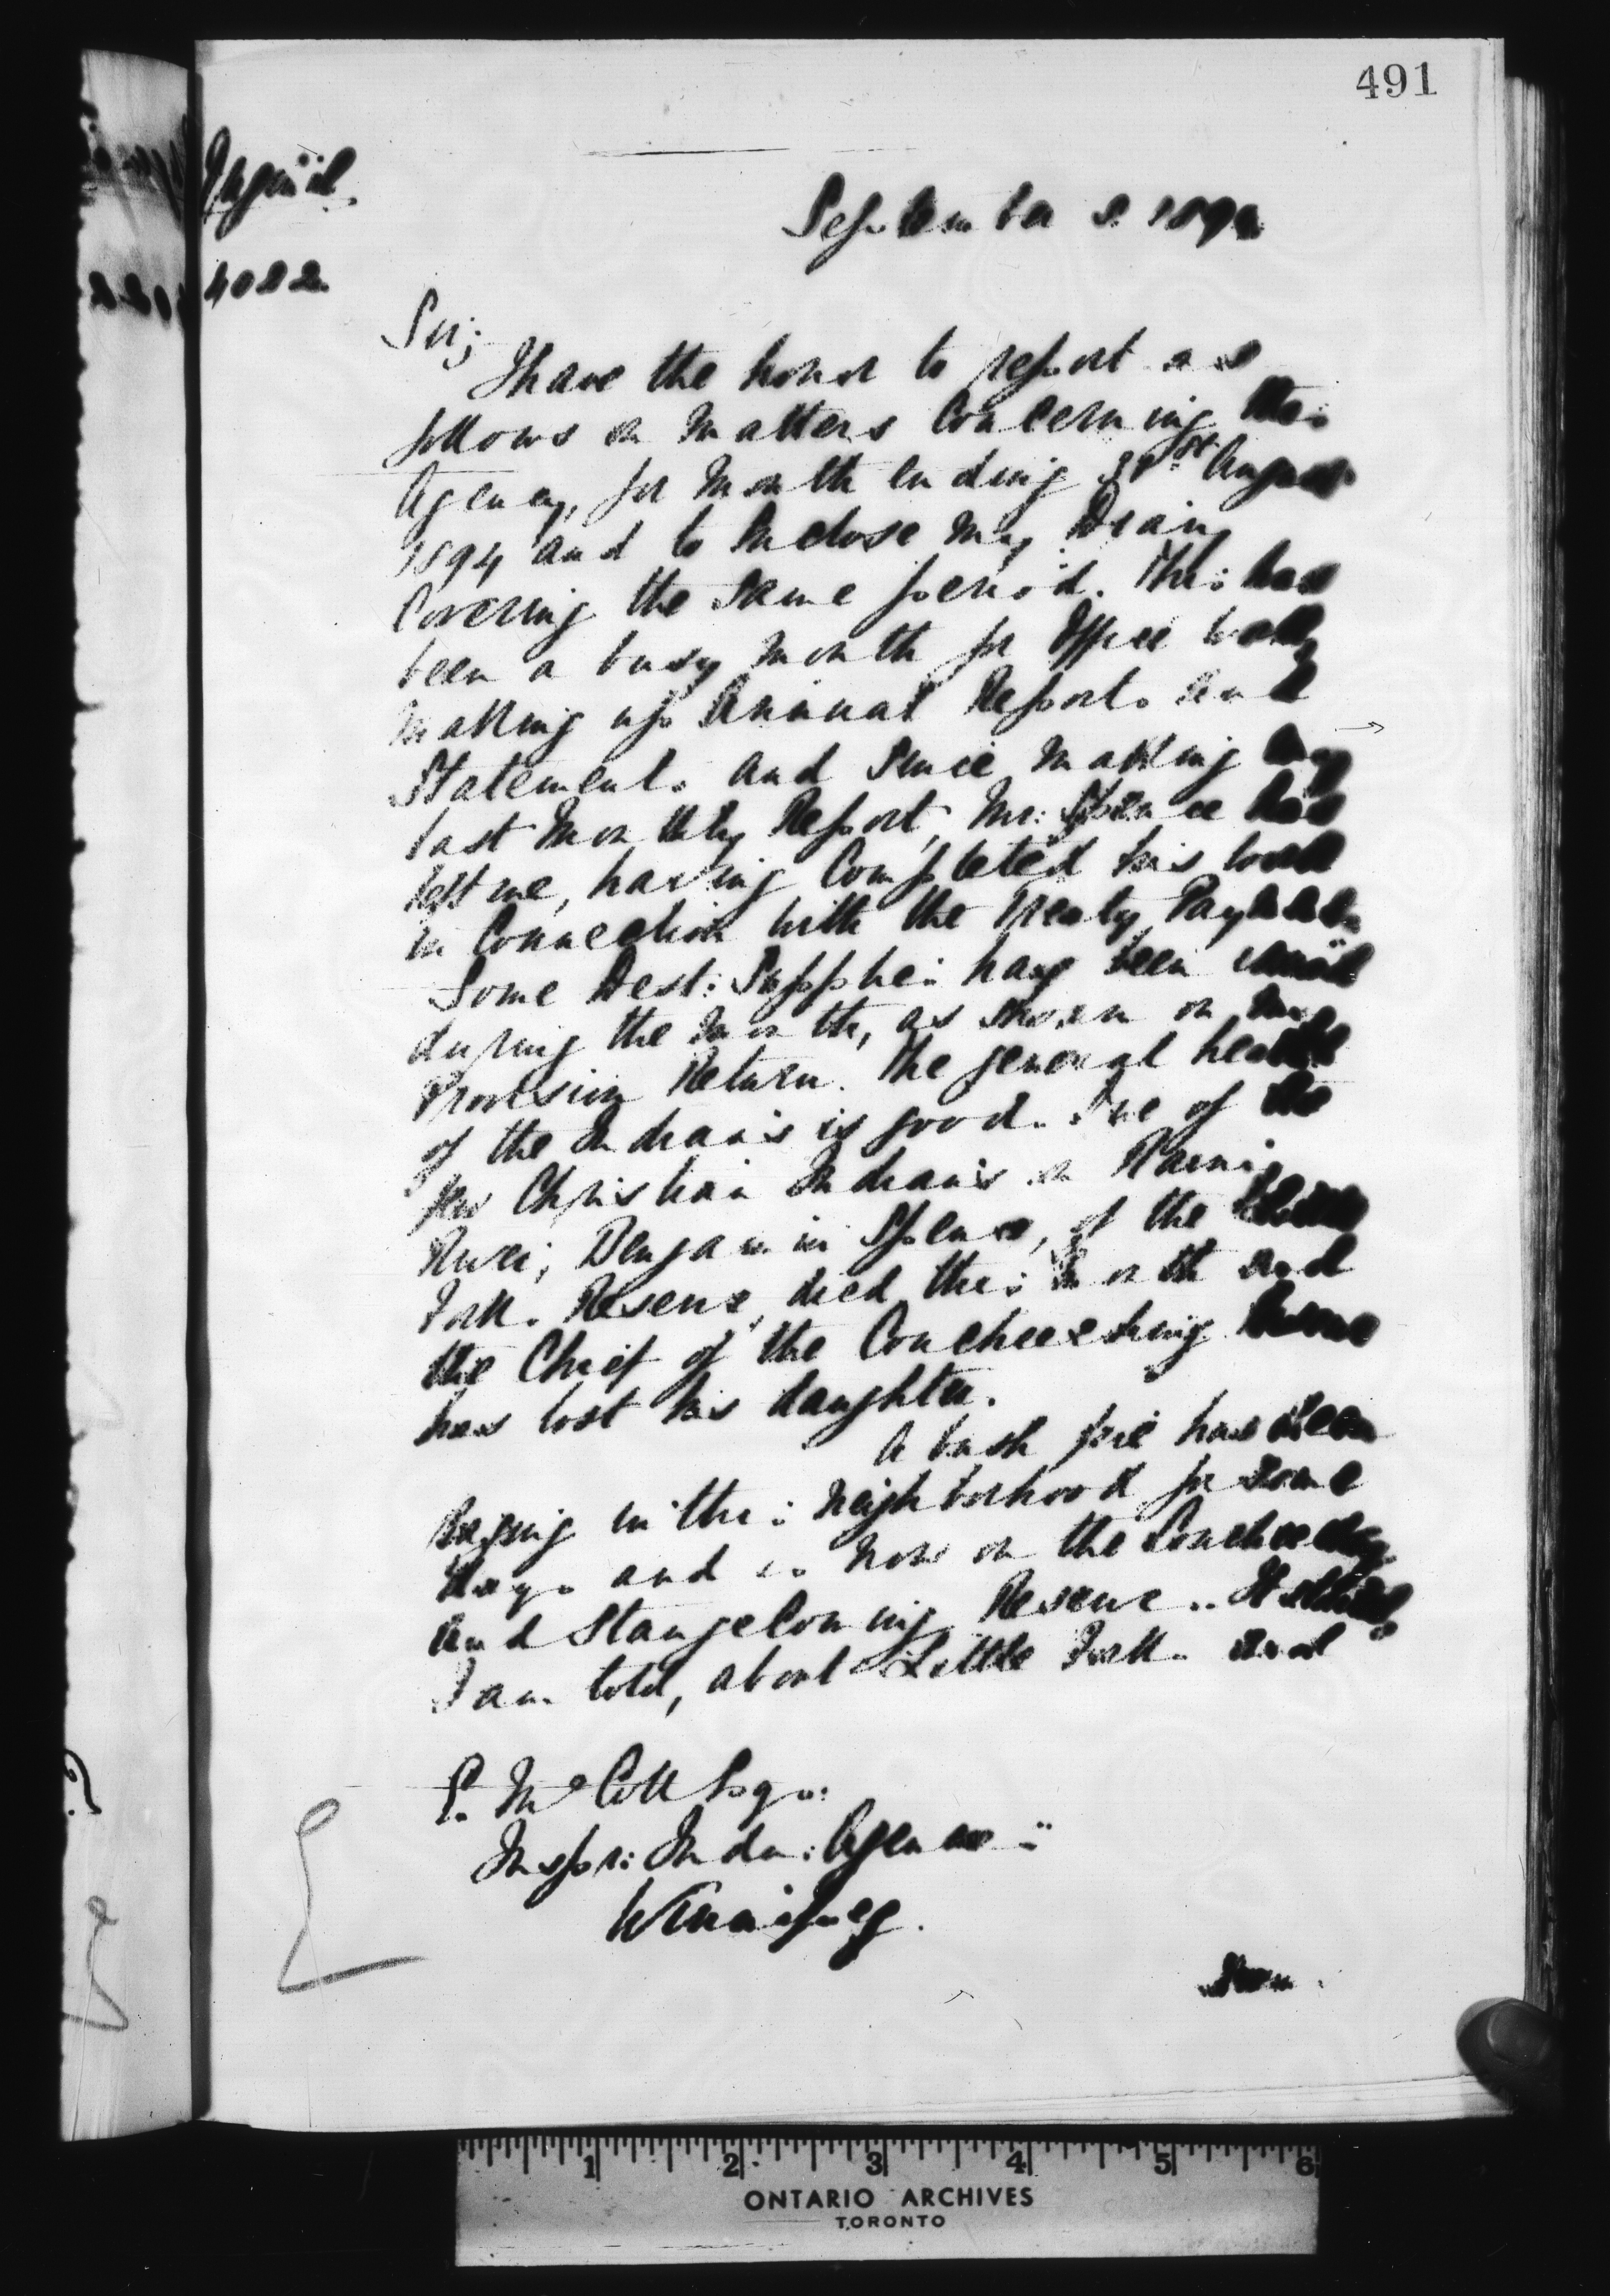 491
4022
September 2 1894
Sir;
I have the honor to report as
follows on matters Concerning this
Agency, for month ending 31st August
1894 and to Inclose my Diary
Covering the Same period. This has
been a busy month for Office work
making up Annual Reports and
Statements and Since making my
last Monthly Report, Mr: Spence has
left me, having Completed his work
in Connection with the Treaty Payments
Some Dest: Supplies have been issued
during the month, as shown on my
Provision Return. The general health
of the Indians is good. One of the
few Christian Indians on Rainy
River, Benjamin Spence, of the Little
Forks Reserve, died this month and
the Chief of the Coucheeching Reserve
has lost his daughter.
A bush fire has been
raging in this neighborhood for some
days and is now on the Coucheeching
and Stangecoming Reserves. It started,
I am told, about Little Forks and
E. McColl Esqr:
Inspr: Indn: Agencies
Winnipeg.
ONTARIO ARCHIVES
TORONTO
1 2 3 4 5 6